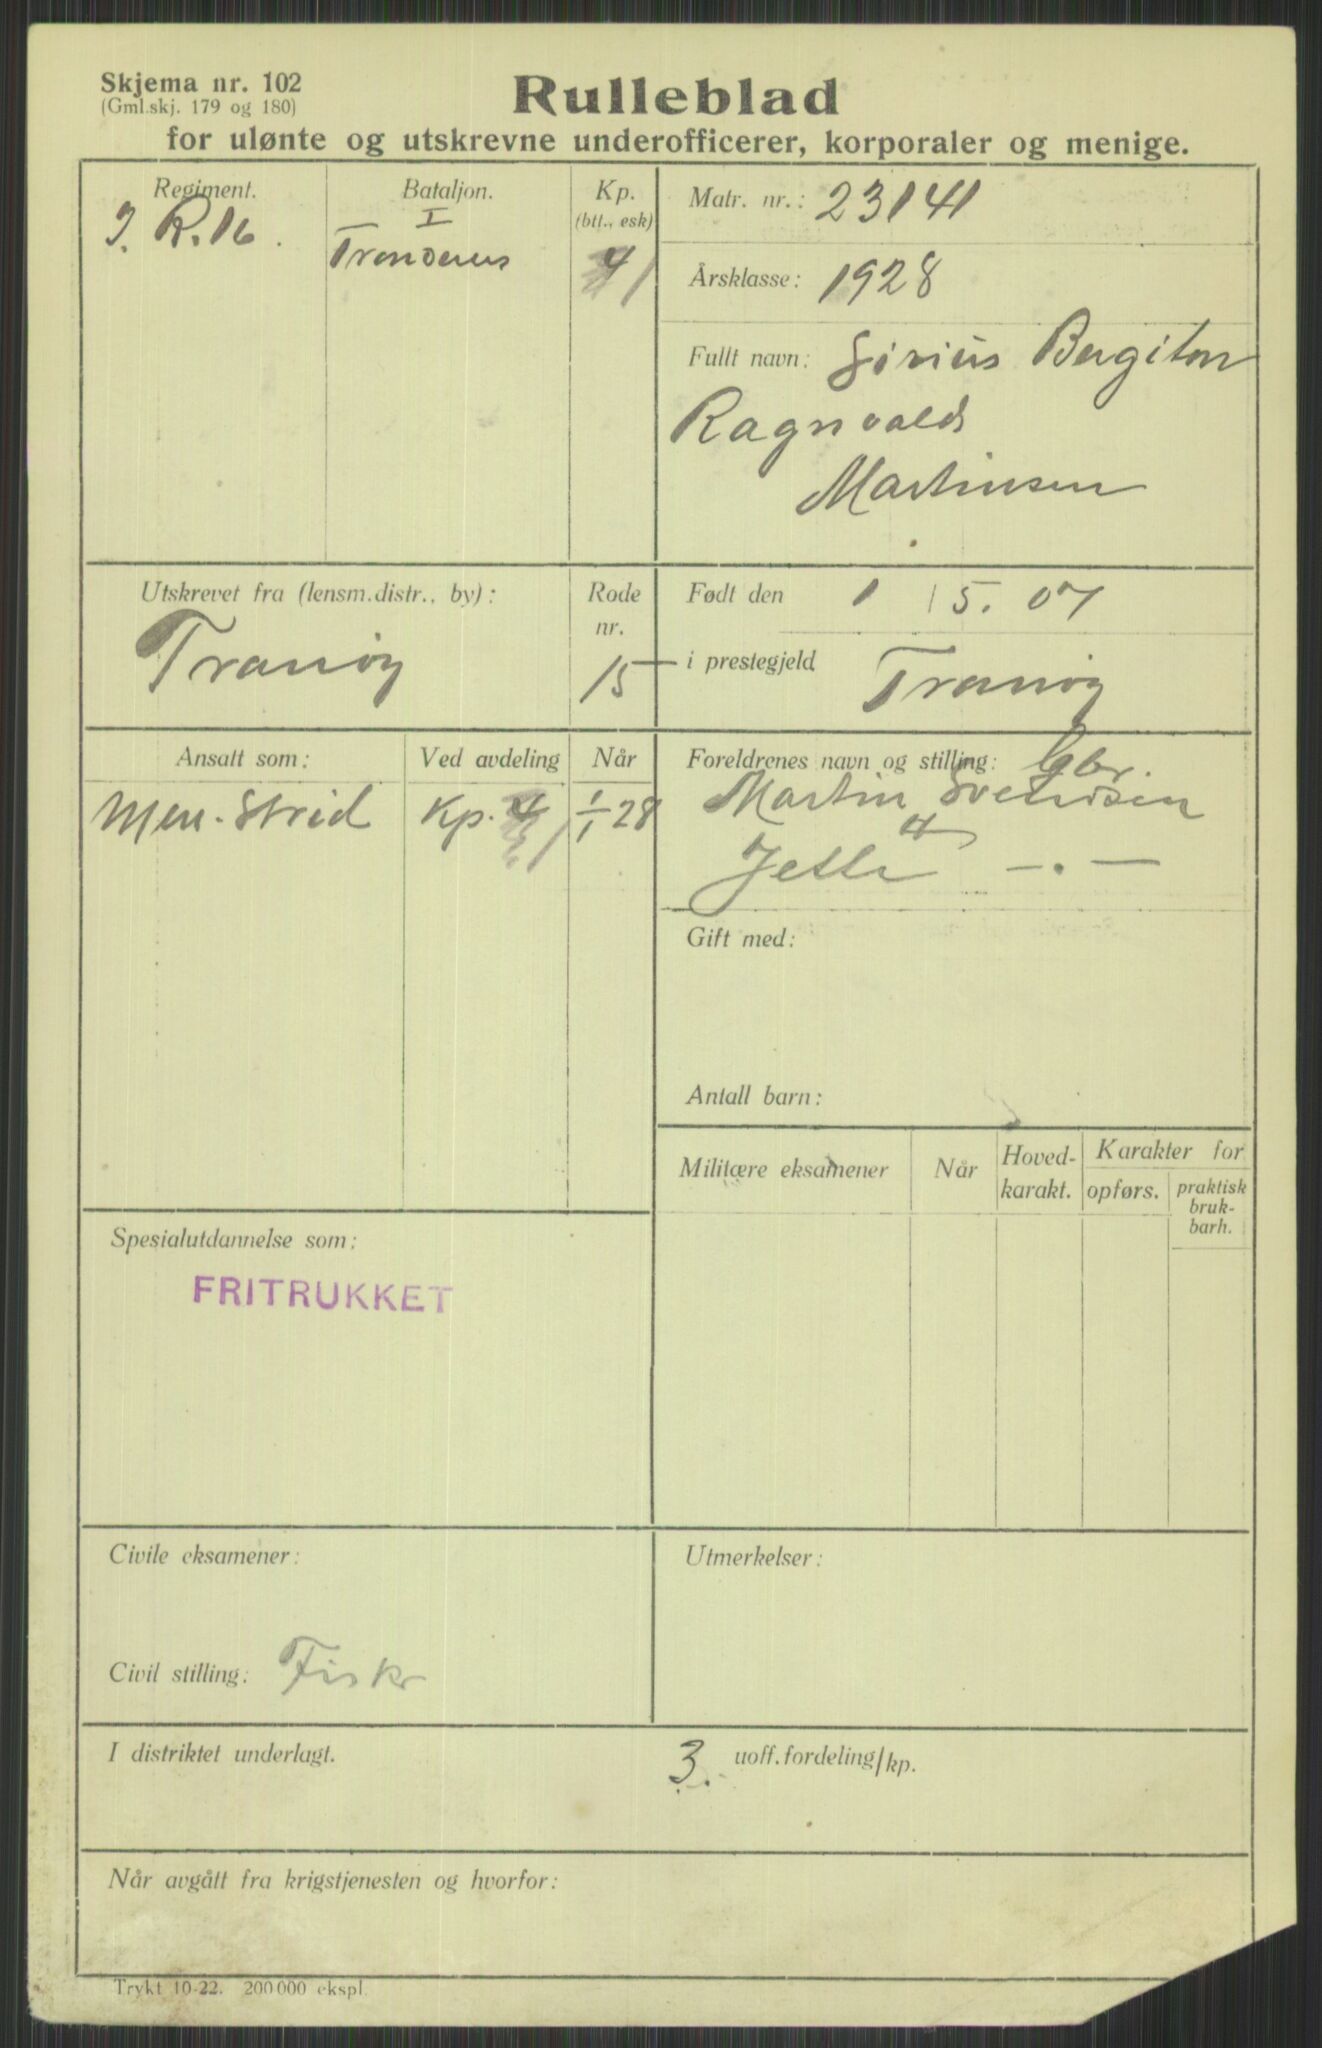 Skjema nr. 102
(Gml.skj. 179 og 180)
Rulleblad
for ulønte og utskrevne underofficerer, korporaler og menige.
Regiment.
I. R. 16.
Bataljon.
I
Trondenes
Kp.
(btt., esk)
4
Matr. nr.: 23141
Årsklasse: 1928
Fullt navn: Sirius Bergiton
Ragnvald
Martinsen
Utskrevet fra (lensm.distr., by):
Tranøy
Rode
nr.
15
Født den 1 5. 07
i prestegjeld Tranøy
Ansatt som:
Men. Strid
Ved avdeling
Kp. 4
Når
1/1 28
Foreldrenes navn og stilling: Gbr.
Martin Svendsen
Jette — . —
Gift med:
Antall barn:
Militære eksamener
Når
Hoved-
karakt.
Karakter for
opførs.
praktisk
bruk-
barh.
Spesialutdannelse som:
FRITRUKKET
Civile eksamener:
Utmerkelser:
Civil stilling: Fiskr
I distriktet underlagt.
3. uoff.fordeling/kp.
Når avgått fra krigstjenesten og hvorfor:
Trykt 10-22. 200 000 ekspl.